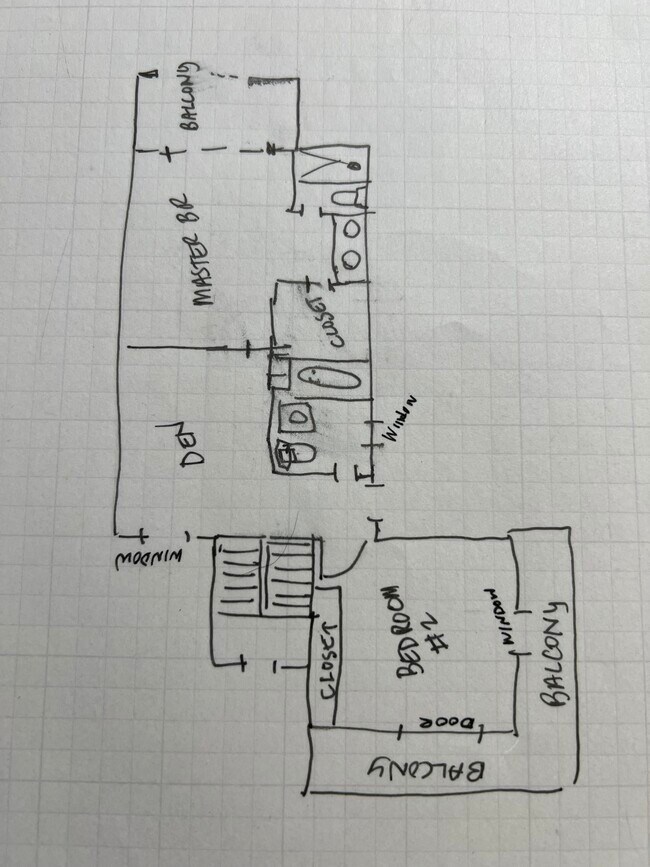 BALCONY
MASTER BR
CLOSET
DEN
WINDOW
WINDOW
BEDROOM
#2
WINDOW
BALCONY
CLOSET
DOOR
BALCONY